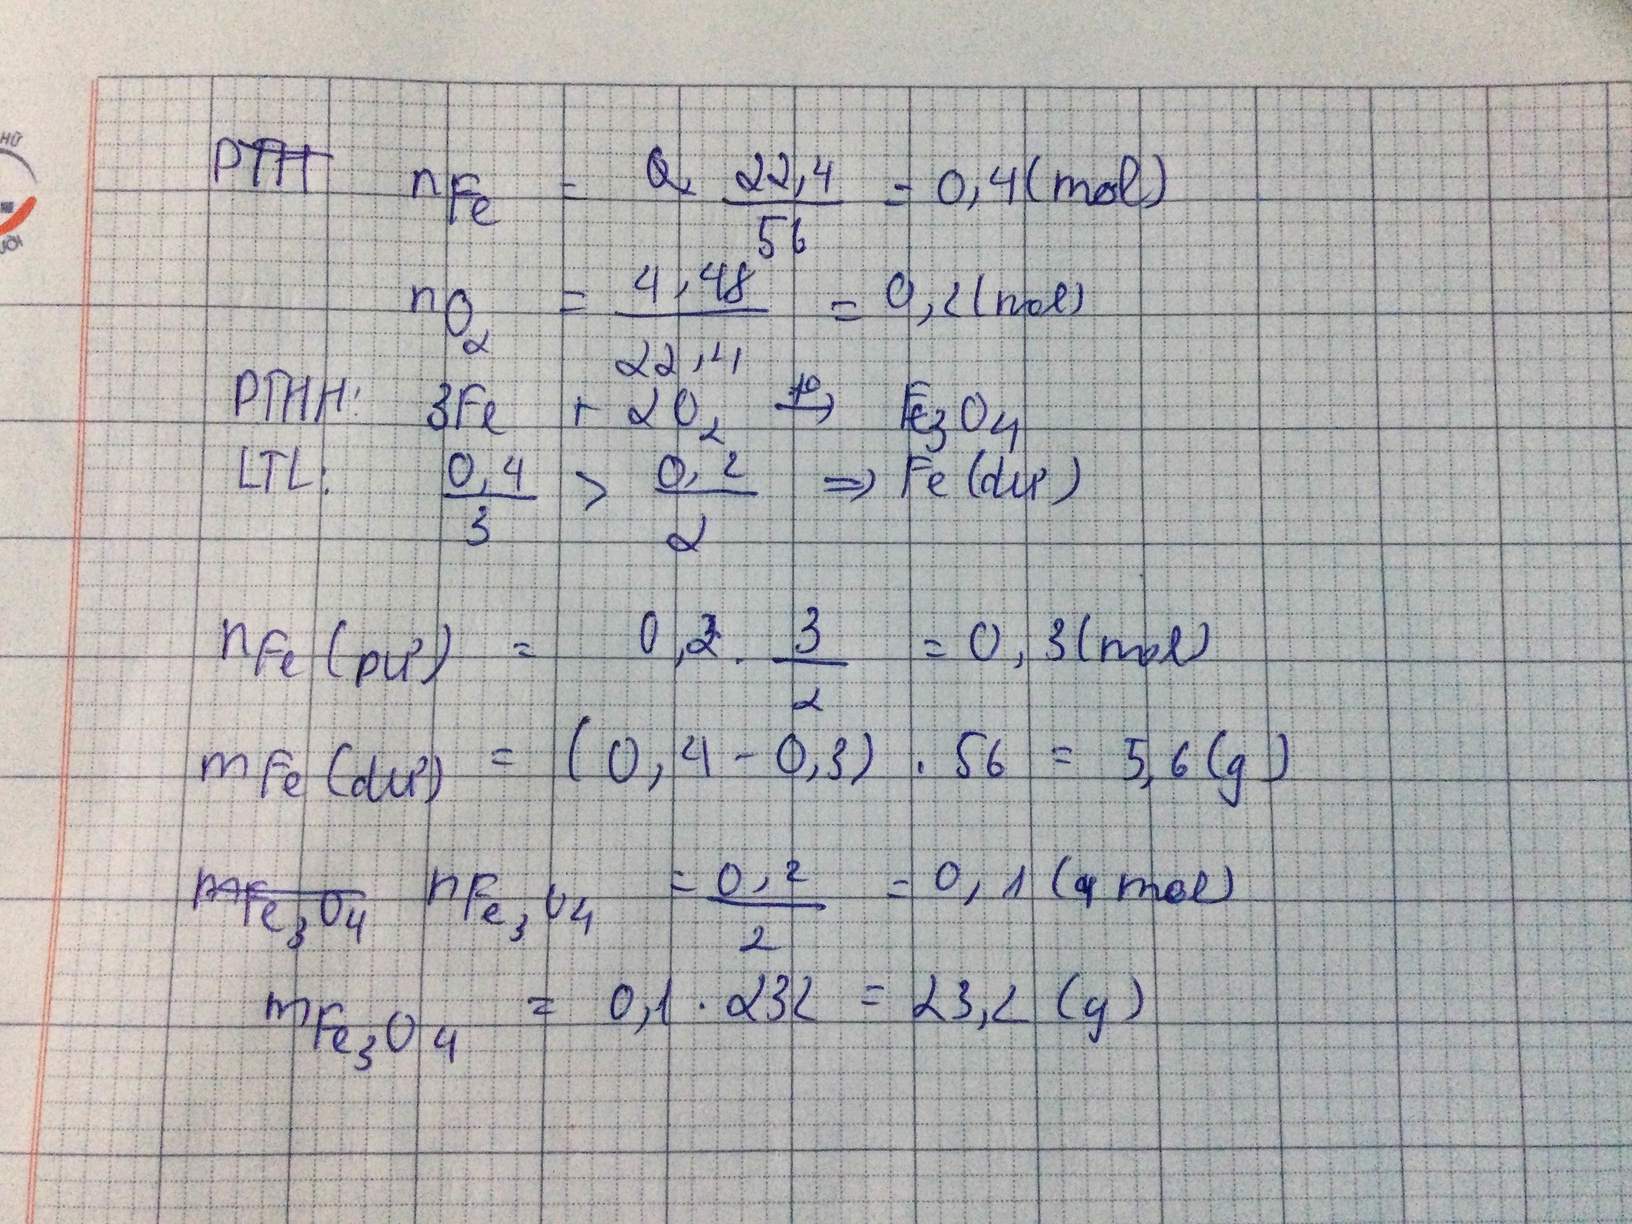 HỮ
ƯỜI
PTH nFe = 0. 22,4/56 = 0,4(mol)
nO2 = 4,48/22,4 = 0,2(mol)
PTHH: 3Fe + 2O2 t°→ Fe3O4
LTL: 0,4/3 > 0,2/2 ⇒ Fe(dư)
nFe(pứ) = 0,2. 3/2 = 0,3(mol)
mFe(dư) = (0,4 - 0,3) . 56 = 5,6(g)
mFe3O4 nFe3O4 = 0,2/2 = 0,1 (mol)
mFe3O4 = 0,1 . 232 = 23,2 (g)